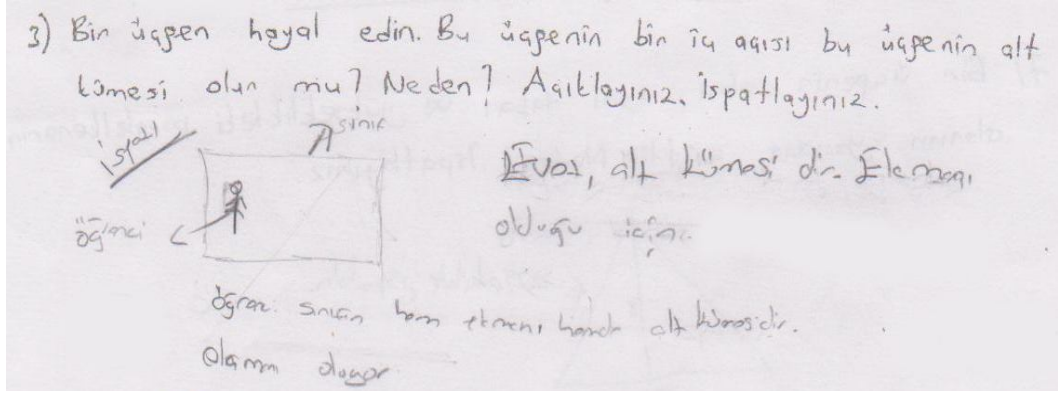 3) Bir üçgen hayal edin. Bu üçgenin bir iç açısı bu üçgenin alt
kümesi olur mu? Neden? Açıklayınız. İspatlayınız.
ispat
sınıf
Evet, alt kümesi dir. Elemanı
olduğu için.
öğrenci
öğrenc. sınıfın hem elemanı hemde alt kümesidir.
oluyor